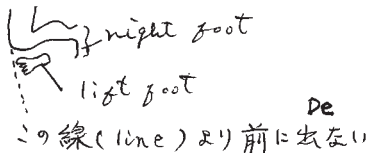 right foot
lift foot
De
この線(line)より前に出ない